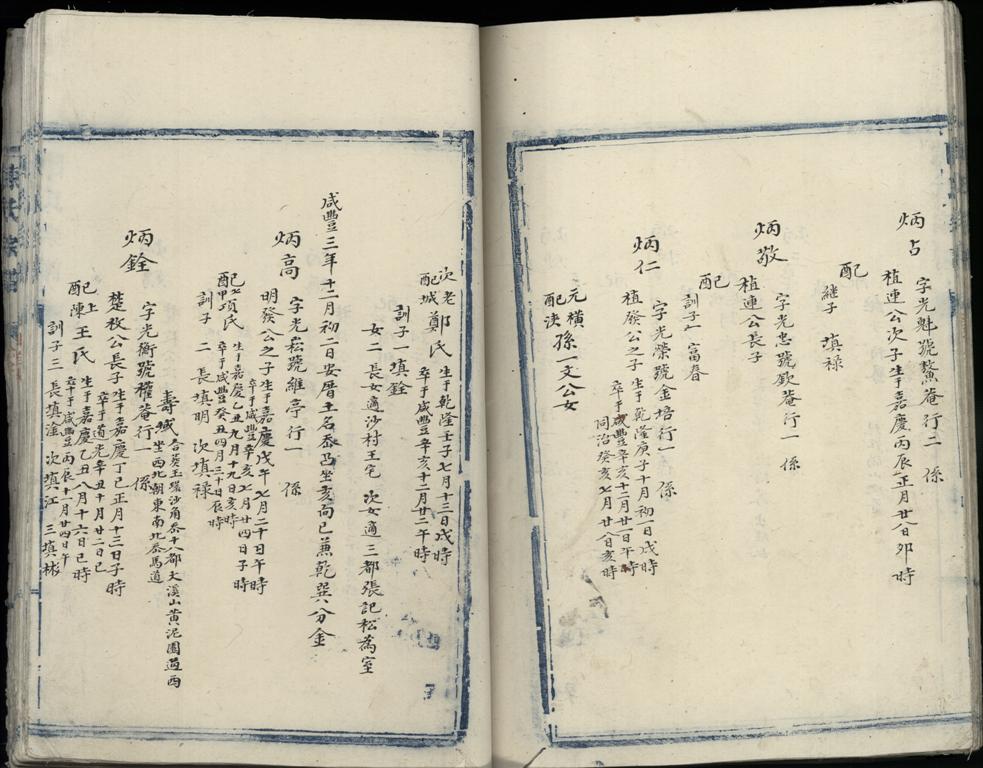 炳占
字光魁號鰲菴行二 係
植連公次子生于嘉慶丙辰正月廿八日卯時
配
継子 填禄
炳敬
字光忠號欽菴行一 係
植連公長子
配
訓子一 富春
炳仁
字光榮號金培行一 係
植發公之子生于乾隆庚子十月初一日戌時
卒于咸豐辛亥十二月廿日午時
同治癸亥七月廿八日亥時
元配 横 孫一文公女
次配 老城 鄭氏 生于乾隆壬子七月十三日戌時
卒于咸豐辛亥十二月廿二午時
訓子一 填銓
女二 長女適沙村王宅 次女適三都張記松為室
咸豐三年十二月初二日安厝土名 坐亥向巳兼乾巽八分金
炳高
字光崧號維亭行一 係
明發公之子生于嘉慶戊午七月二十日午時
卒于咸豐辛亥七月廿四日子時
配 七甲 項氏 生于嘉慶乙丑九月十九日亥時
卒于咸豐癸丑四月三十日辰時
訓子 二 長填明 次填禄
壽域 合葵玉環沙角岙十八都大溪山黄泥園過西
坐西北朝東南北岙馬道
炳銓
字光衡號權菴行一 係
楚枚公長子生于嘉慶丁巳正月十三日子時
卒于道光辛丑十月廿二日巳
配 上陳 王氏 生于嘉慶乙丑八月十六日巳時
卒于咸豐丙辰十一月廿四日午
訓子三 長填淦 次填江 三填彬